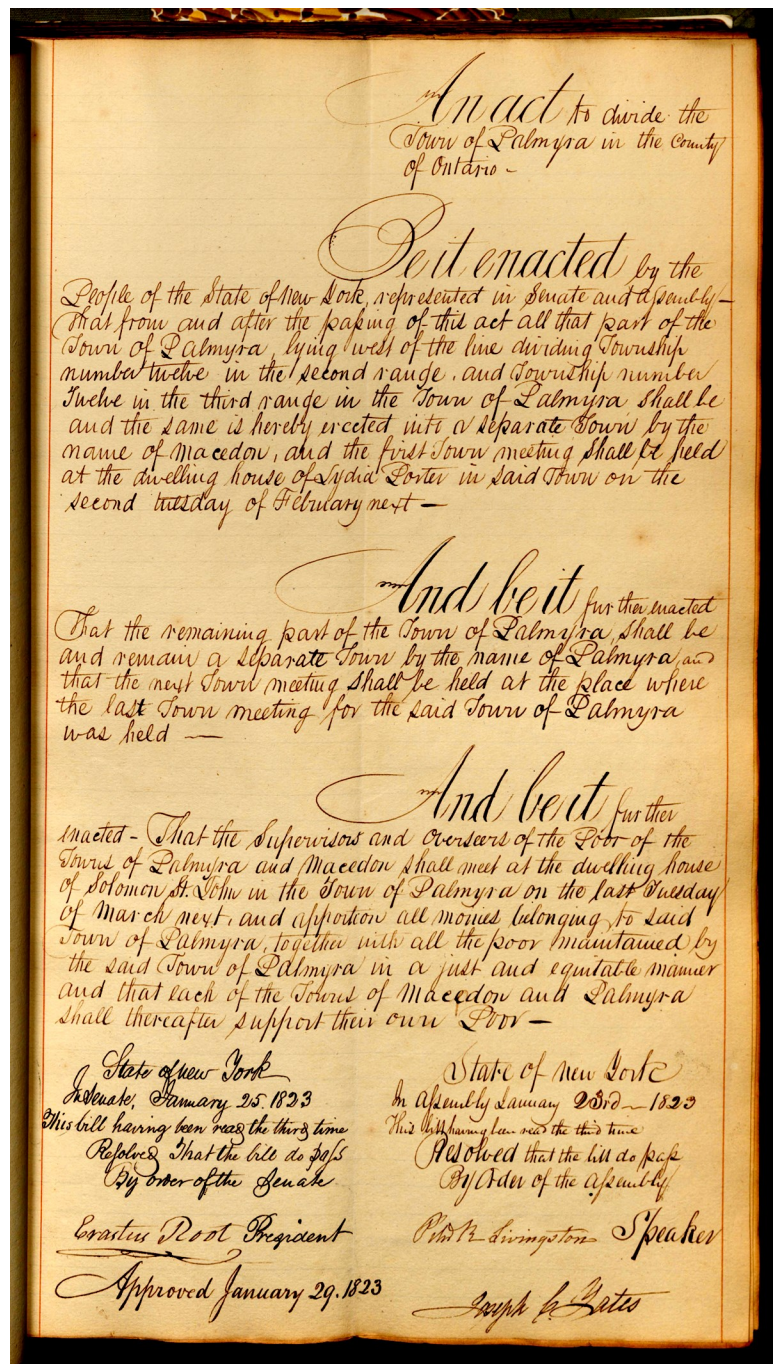 An act to divide the
Town of Palmyra in the County
of Ontario -
Be it enacted by the
People of the State of New York, represented in Senate and Assembly -
That from and after the passing of this act all that part of the
Town of Palmyra, lying west of the line dividing Township
number twelve in the second range, and Township number
Twelve in the third range in the Town of Palmyra shall be
and the same is hereby erected into a separate Town by the
name of Macedon, and the first Town meeting shall be held
at the dwelling house of Lydia Porter in said Town on the
second tuesday of Febuary next —
And be it further enacted
That the remaining part of the Town of Palmyra, shall be
and remain a separate Town by the name of Palmyra, and
that the next Town meeting shall be held at the place where
the last Town meeting for the said Town of Palmyra
was held —
And be it further
enacted - That the Supervisors and overseers of the Poor of the
Towns of Palmyra and Macedon shall meet at the dwelling house
of Solomon St. John in the Town of Palmyra on the last Tuesday
of March next, and apportion all monies belonging to said
Town of Palmyra, together with all the poor maintained by
the said Town of Palmyra in a just and equitable manner
and that each of the Towns of Macedon and Palmyra
shall thereafter support their own Poor —
State of New York
In Senate, January 25. 1823
This bill having been read the third time
Resolved That the bill do pass
By order of the Senate
Erastus Root President
Approved January 29. 1823
State of New York
In Assembly January 23rd — 1823
This bill having been read the third time
Resolved that the bill do pass
By Order of the Assembly
Livingston Speaker
Joseph C. Yates